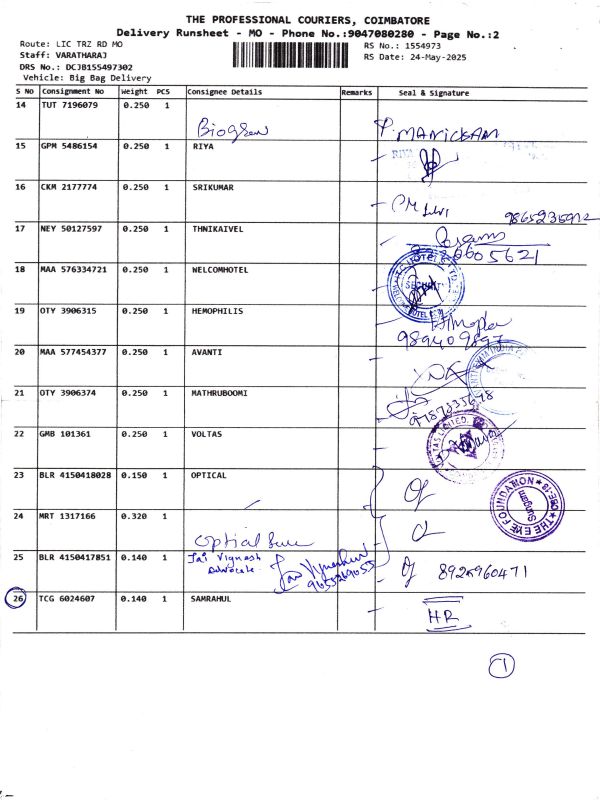 THE PROFESSIONAL COURIERS, COIMBATORE
Delivery Runsheet - MO - Phone No.:9047080280 - Page No.:2
Route: LIC TRZ RD MO
RS No.: 1554973
Staff: VARATHARAJ
RS Date: 24-May-2025
DRS No.: DCJB155497302
Vehicle: Big Bag Delivery
S NO Consignment No Weight PCS Consignee Details Remarks Seal & Signature
14 TUT 7196079 0.250 1
P. MANICKAM
15 GPM 5486154 0.250 1 RIYA
RIYA
16 CKM 2177774 0.250 1 SRIKUMAR
9865235912
17 NEY 50127597 0.250 1 THNIKAIVEL
18 MAA 576334721 0.250 1 WELCOMHOTEL
SECURITY
19 OTY 3906315 0.250 1 HEMOPHILIS
20 MAA 577454377 0.250 1 AVANTI
21 OTY 3906374 0.250 1 MATHRUBOOMI
22 GMB 101361 0.250 1 VOLTAS
23 BLR 4150418028 0.150 1 OPTICAL
THE EYE FOUNDATION
24 MRT 1317166 0.320 1
25 BLR 4150417851 0.140 1 Jai Vignesh
Advocate.
8925960471
26 TCG 6024607 0.140 1 SAMRAHUL
HR
1